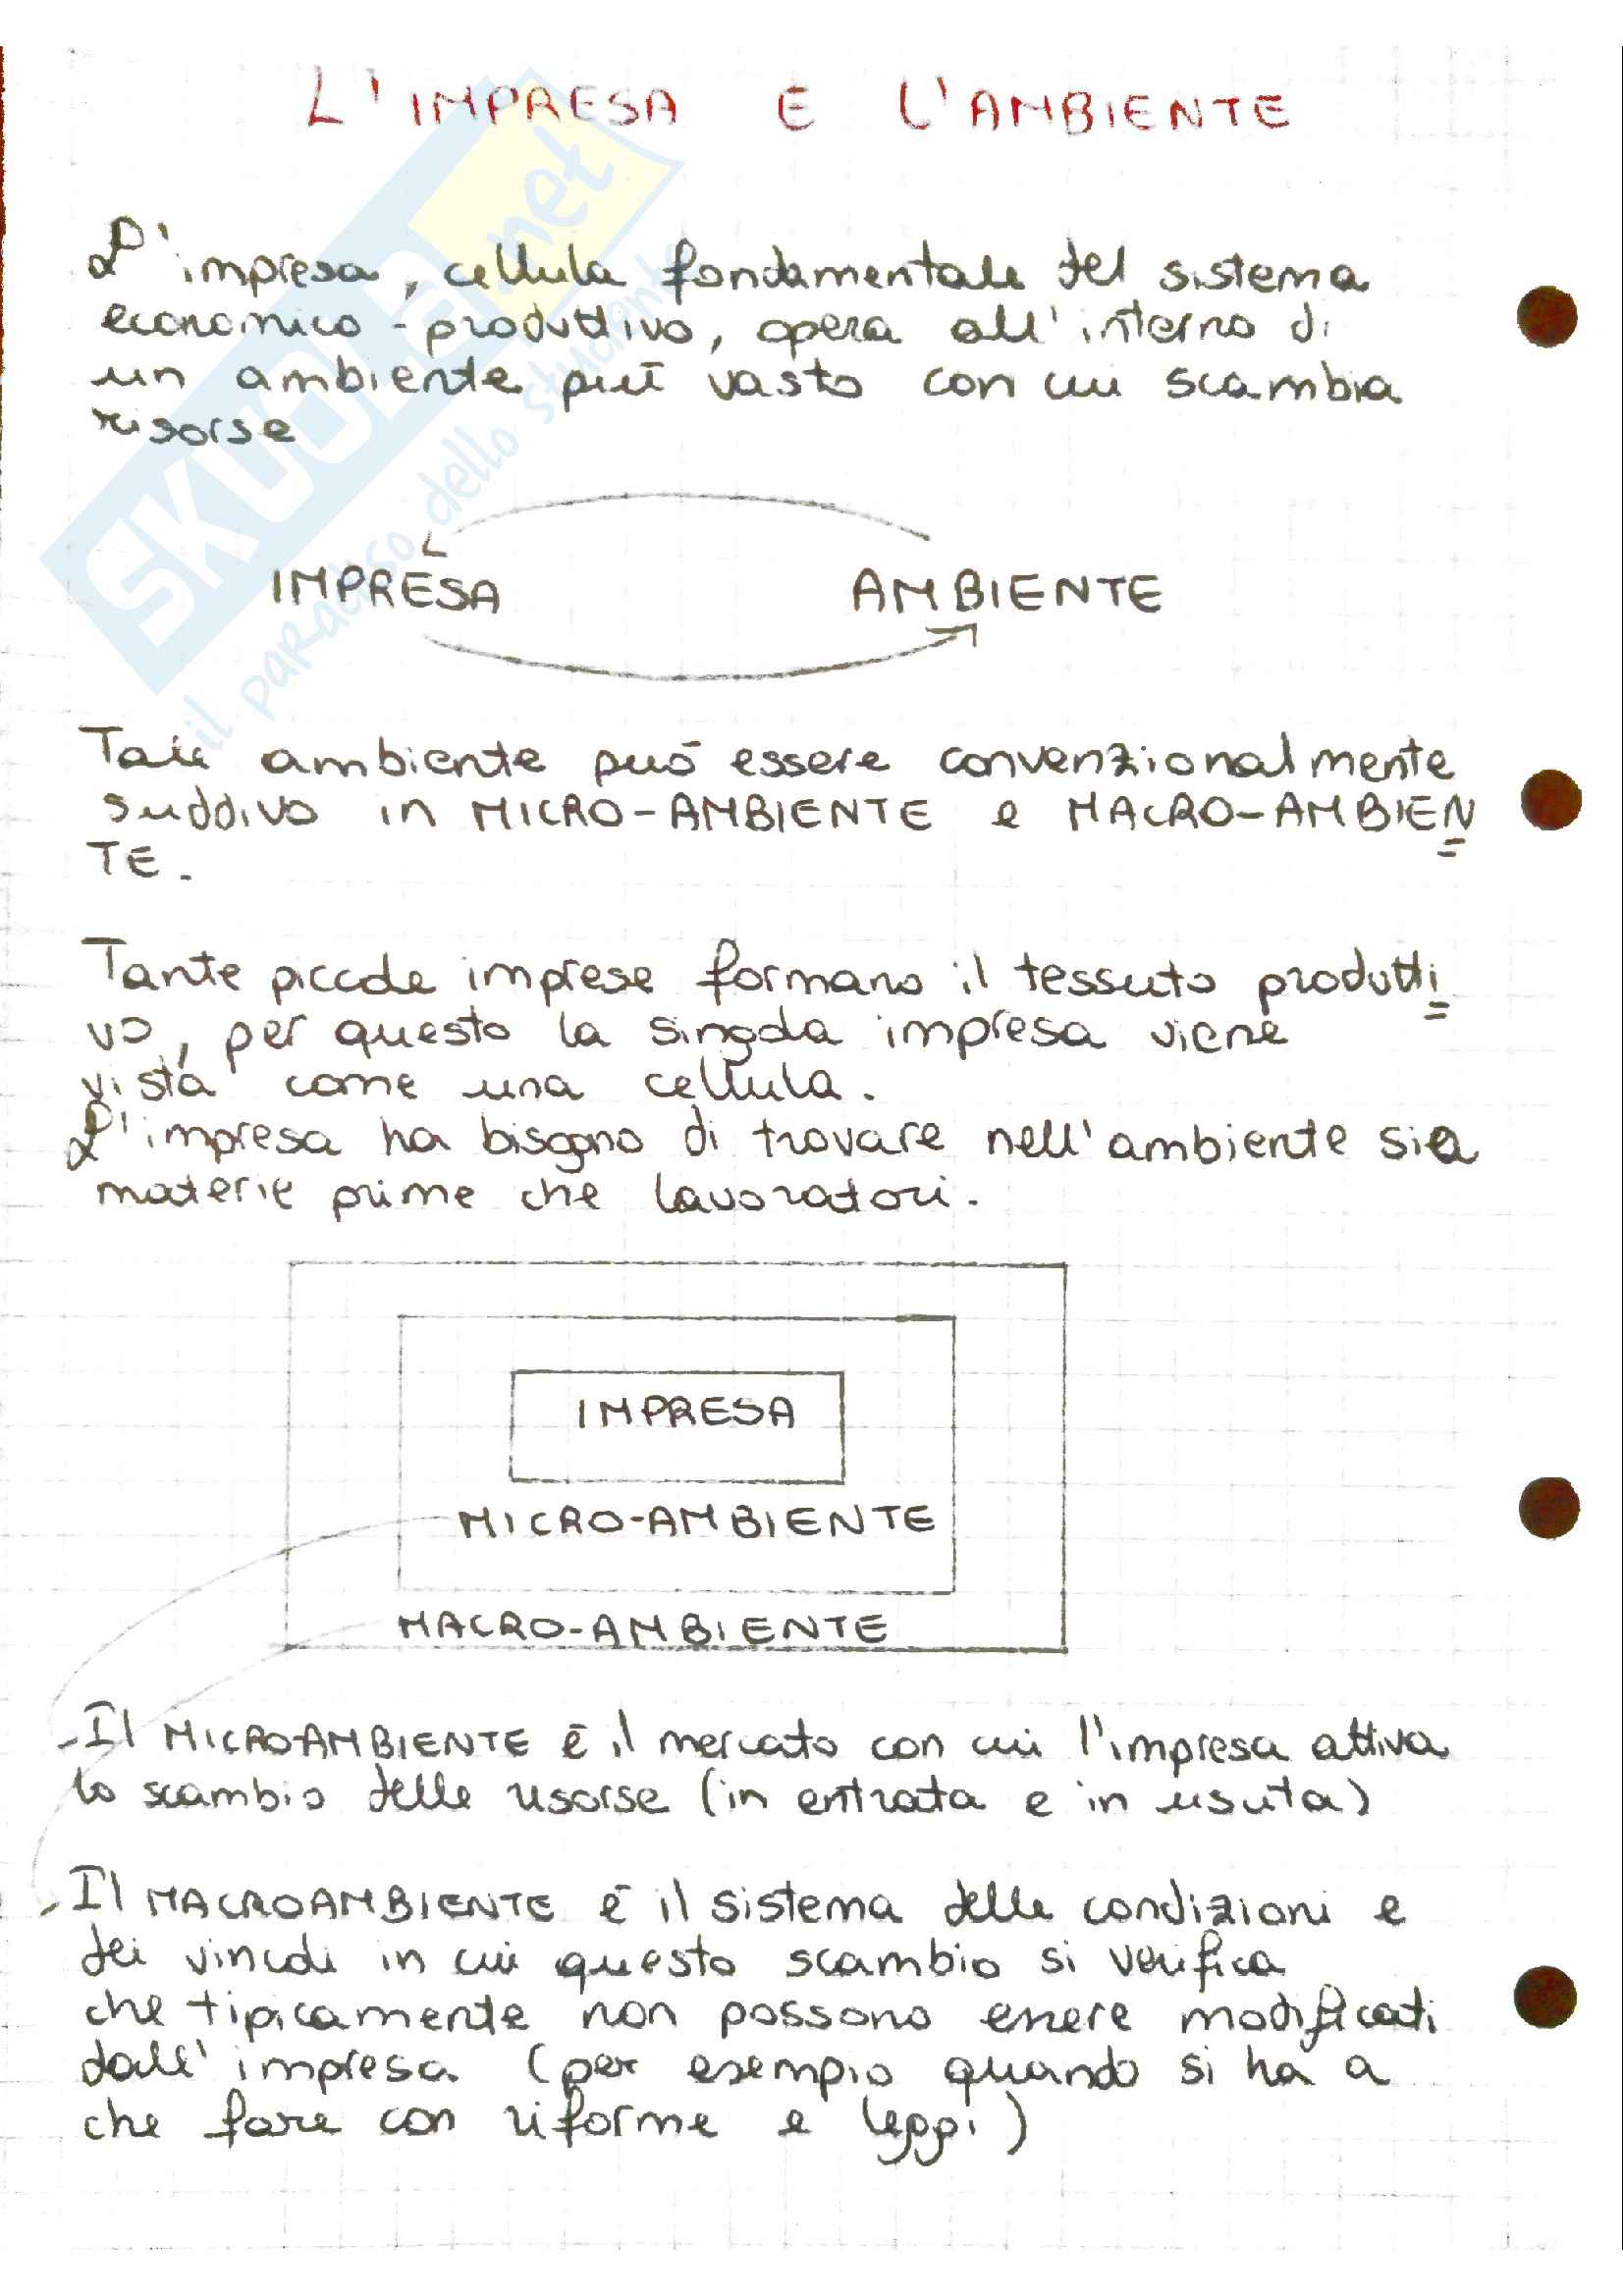 L'IMPRESA E L'AMBIENTE
L'impresa, cellula fondamentale del sistema
economico-produttivo, opera all'interno di
un ambiente più vasto con cui scambia
risorse
IMPRESA AMBIENTE
Tale ambiente può essere convenzionalmente
suddivo in MICRO-AMBIENTE e MACRO-AMBIEN=
TE.
Tante piccole imprese formano il tessuto produtti=
vo, per questo la singola impresa viene
vista come una cellula.
L'impresa ha bisogno di trovare nell'ambiente sia
materie prime che lavoratori.
IMPRESA
MICRO-AMBIENTE
MACRO-AMBIENTE
-Il MICROAMBIENTE è il mercato con cui l'impresa attiva
lo scambio delle risorse (in entrata e in uscita)
-Il MACROAMBIENTE è il sistema delle condizioni e
dei vincoli in cui questo scambio si verifica
che tipicamente non possono essere modificati
dall'impresa (per esempio quando si ha a
che fare con riforme e leggi)
SKUOLA.net
il paradiso dello studente